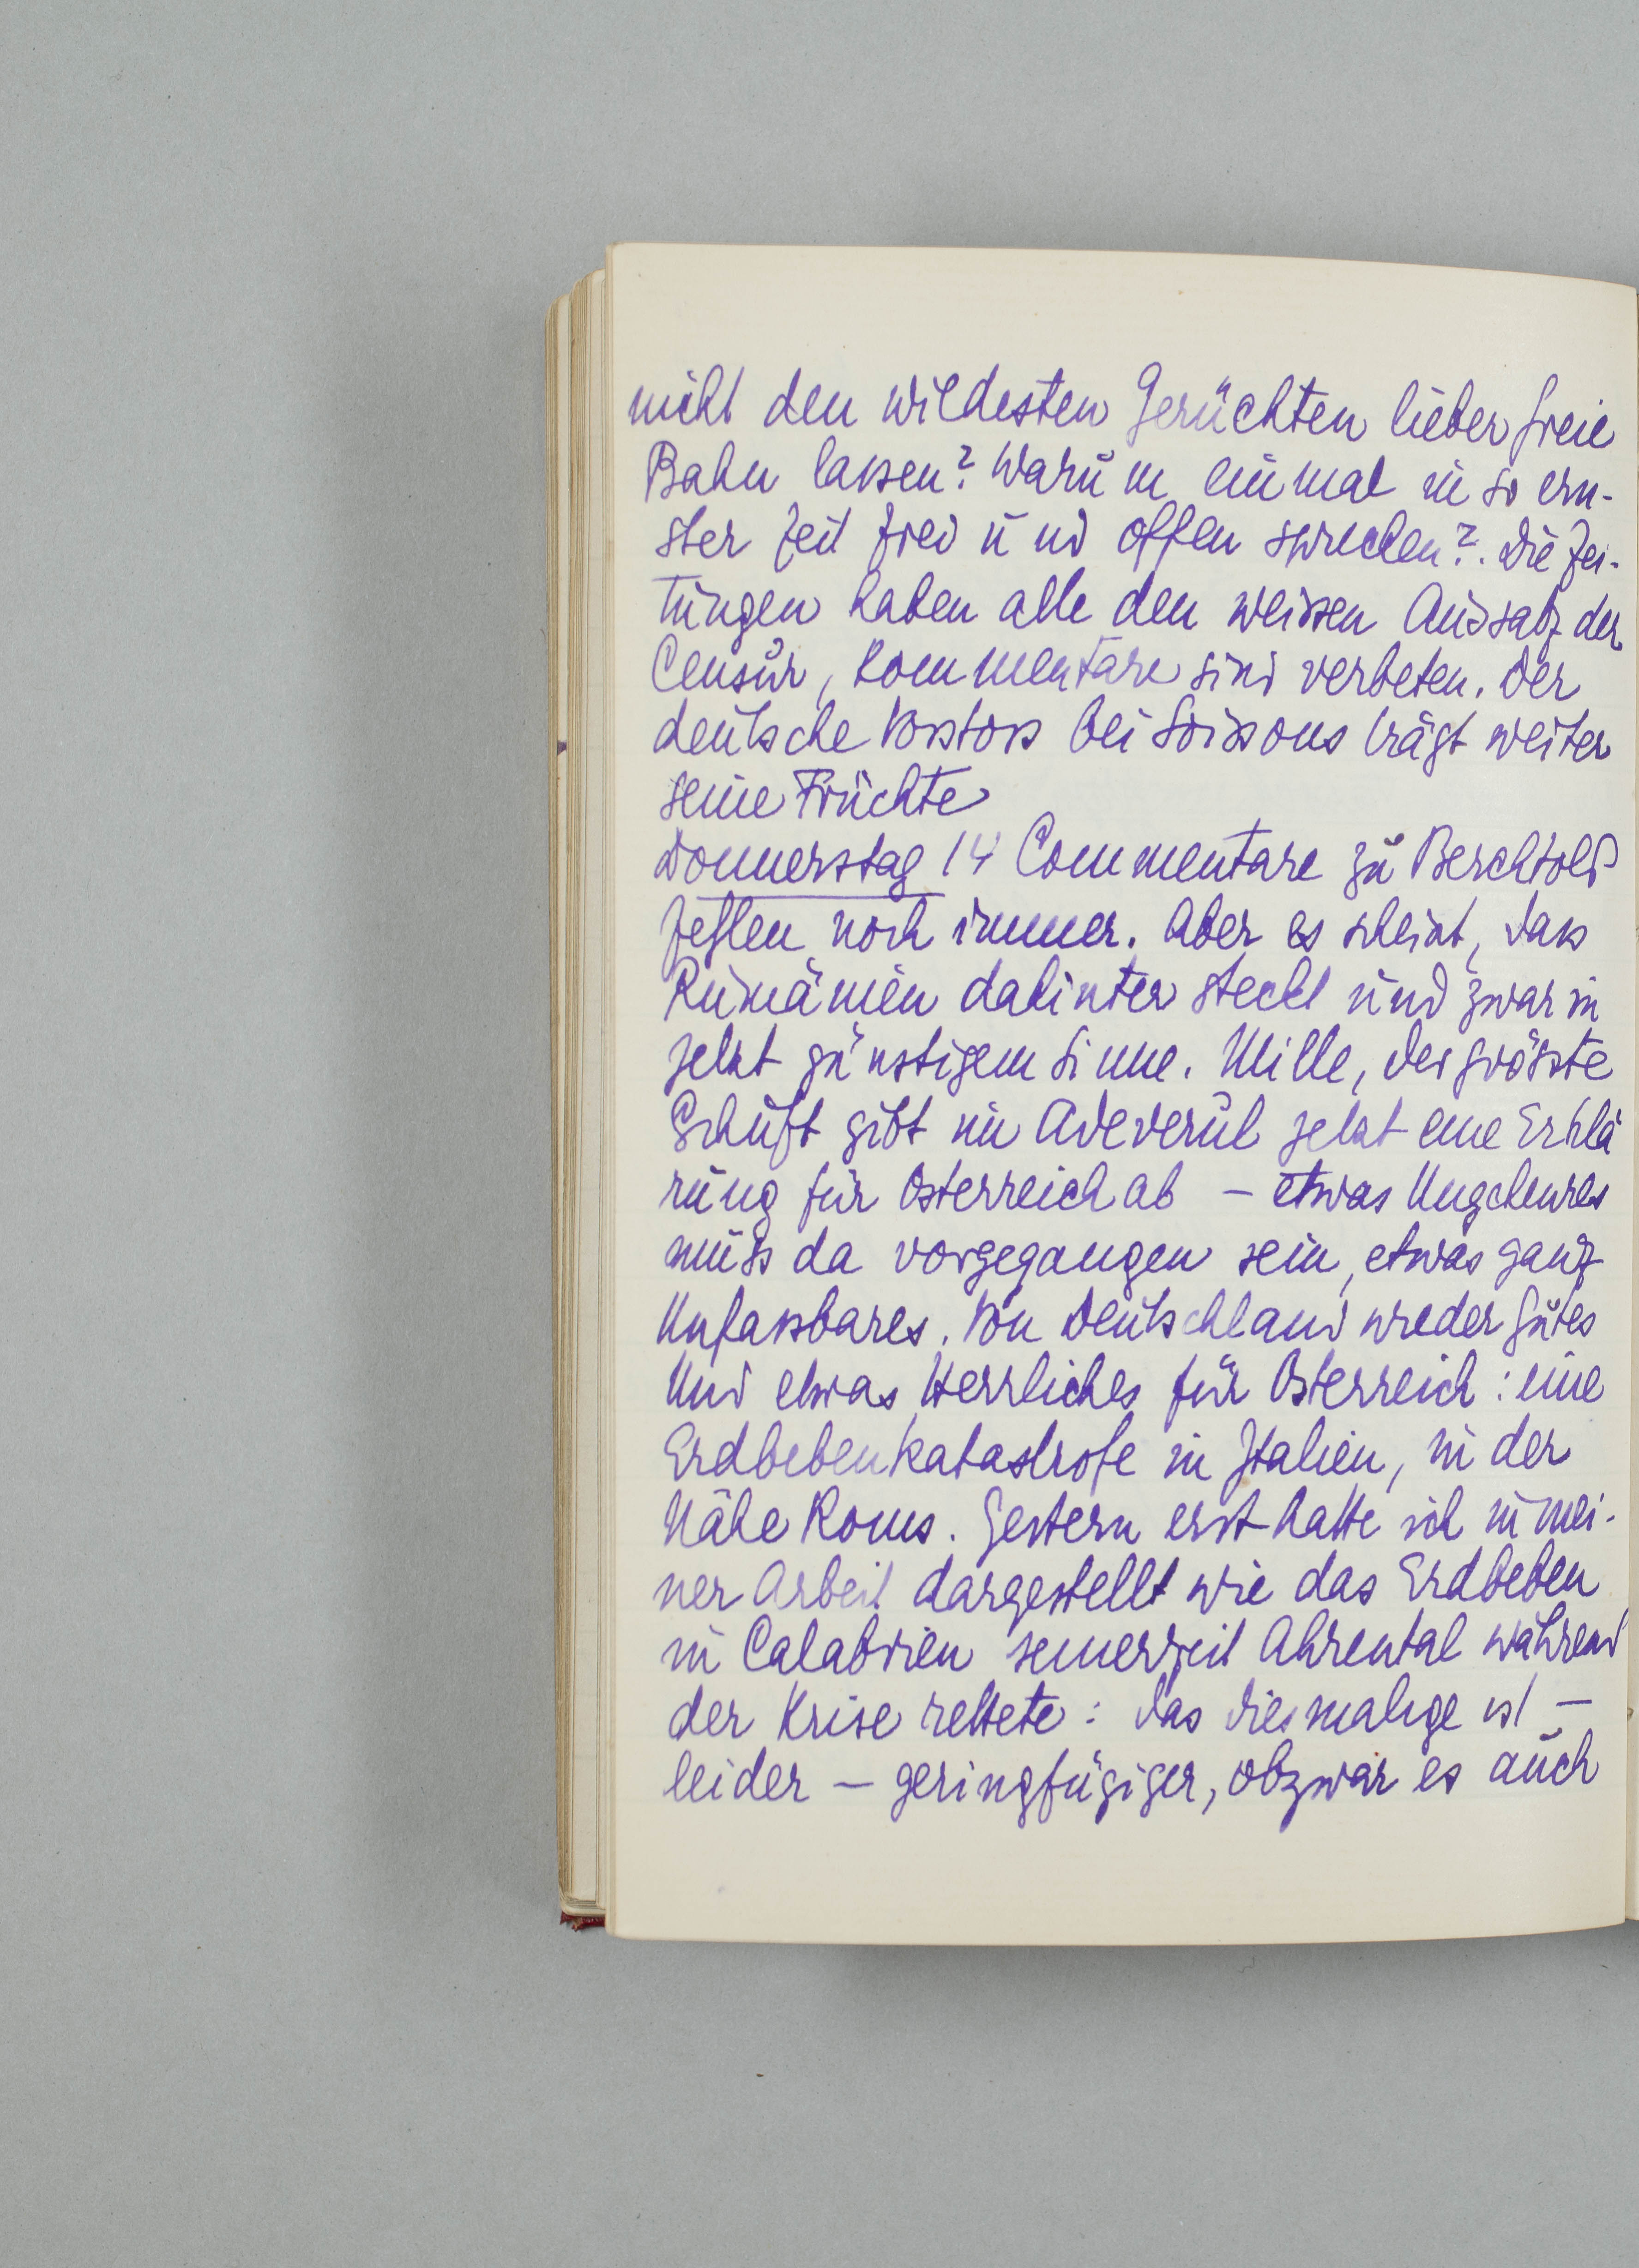 nicht den wildesten Gerüchten lieber freie
Bahn lassen? Warum einmal in so ern-
ster Zeit frei und offen sprechen?. Die Zei-
tungen haben alle den weissen Aussatz der
Censur, Kommentare sind verbeten. Der
deutsche Vorstoss bei Soissons trägt weiter
seine Früchte
Donnerstag 14 Commentare zu Berchtold
fehlen noch immer. Aber es scheint, dass
Rumänien dahinter steckt und zwar in
jetzt günstigem Sinne. Mille, der grösste
Schuft gibt im Adeverul jetzt eine Erklä
rung für Österreich ab – etwas Ungeheures
muss da vorgegangen sein, etwas ganz
Unfassbares. Von Deutschland wieder Gutes
Und etwas Herrliches für Österreich: eine
Erdbebenkatastrofe in Italien, in der
Nähe Roms. Gestern erst hatte ich in mei-
ner Arbeit dargestellt wie das Erdbeben
in Calabrien seinerzeit Ährental während
der Krise rettete: das diesmalige ist –
leider – geringfügiger, obzwar es auch